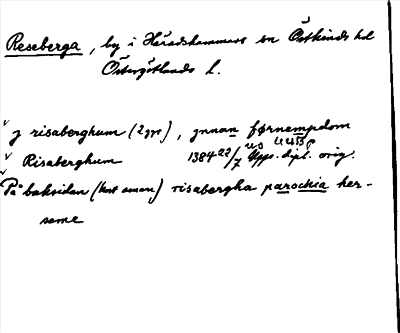 Reseberga, by i Häradshammars sn Östkinds hd
Östergötlands l.
j risaberghum (2 ggr), jnnan førnempdom
Risaberghum 1384 22/7 Upps. dipl. orig.
På baksidan (hart annan) risabergha parochia her-
some